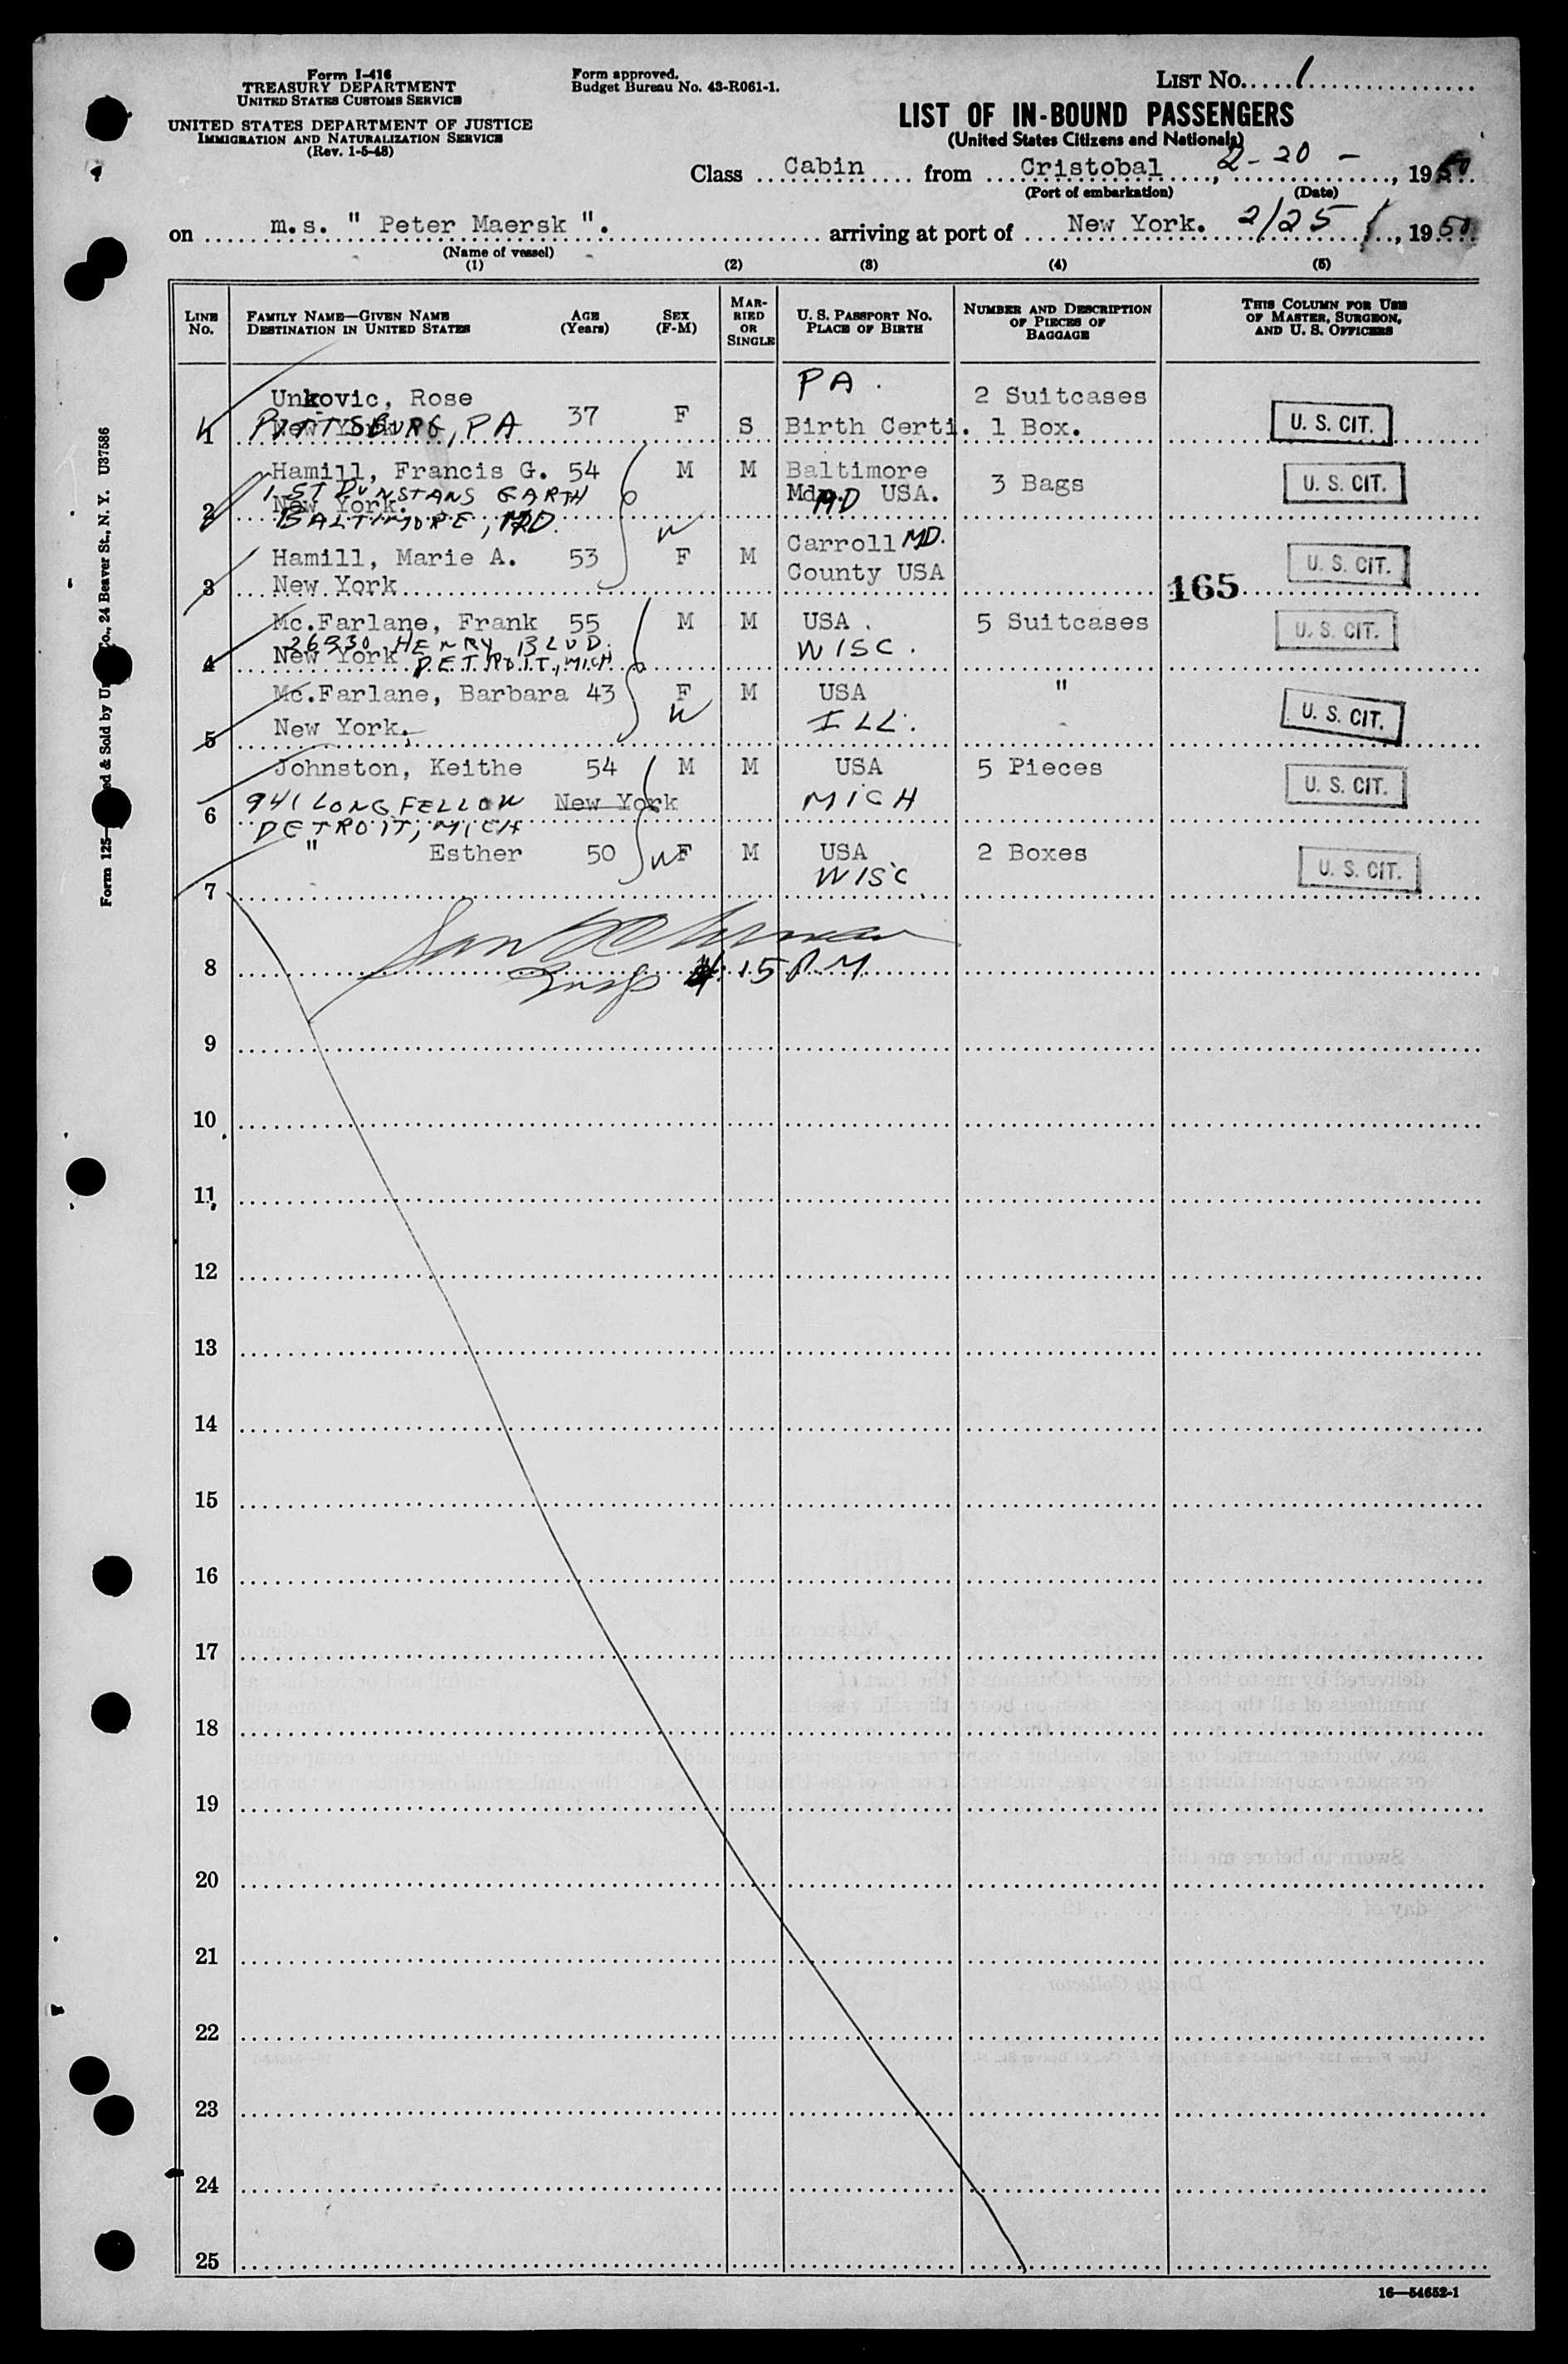 Form I-416
TREASURY DEPARTMENT
UNITED STATES CUSTOMS SERVICE
UNITED STATES DEPARTMENT OF JUSTICE
IMMIGRATION AND NATURALIZATION SERVICE
(Rev. 1-5-48)
Form approved.
Budget Bureau No. 43-R061-1.
LIST No. 1
LIST OF IN-BOUND PASSENGERS
(United States Citizens and Nationals)
Class Cabin from Cristobal, 2-20-, 1950
(Port of embarkation) (Date)
on m.s. " Peter Maersk ". arriving at port of New York. 2/25/, 1950
(Name of vessel)
(1) (2) (3) (4) (5)
LINE No. FAMILY NAME—GIVEN NAME DESTINATION IN UNITED STATES AGE (Years) SEX (F-M) MARRIED OR SINGLE U. S. PASSPORT NO. PLACE OF BIRTH NUMBER AND DESCRIPTION OF PIECES OF BAGGAGE THIS COLUMN FOR USE OF MASTER, SURGEON, AND U. S. OFFICERS
PA.
Unkovic, Rose 37 F 2 Suitcases
1 New York PITTSBURG, PA S Birth Certi. 1 Box. U. S. CIT.
Hamill, Francis G. 54 M M Baltimore 3 Bags U. S. CIT.
1 ST DUNSTANS GARTH Md. MD USA.
2 New York.
BALTIMORE, MD.
Hamill, Marie A. 53 W F M Carroll MD. U. S. CIT.
3 New York County USA 165
Mc.Farlane, Frank 55 M M USA. 5 Suitcases U. S. CIT.
26930 HENRY BLVD. WISC.
4 New York DETROIT, MICH
Mc.Farlane, Barbara 43 F M USA " U. S. CIT.
5 New York. W ILL.
Johnston, Keithe 54 M M USA 5 Pieces U. S. CIT.
6 941 LONGFELLOW New York MICH
DETROIT, MICH
" Esther 50 W F M USA 2 Boxes U. S. CIT.
7 WISC
8 Insp 4:15 PM
9
10
11
12
13
14
15
16
17
18
19
20
21
22
23
24
25
16—54652-1
Form 125
ed & Sold by U
Co., 24 Beaver St., N. Y. U37586